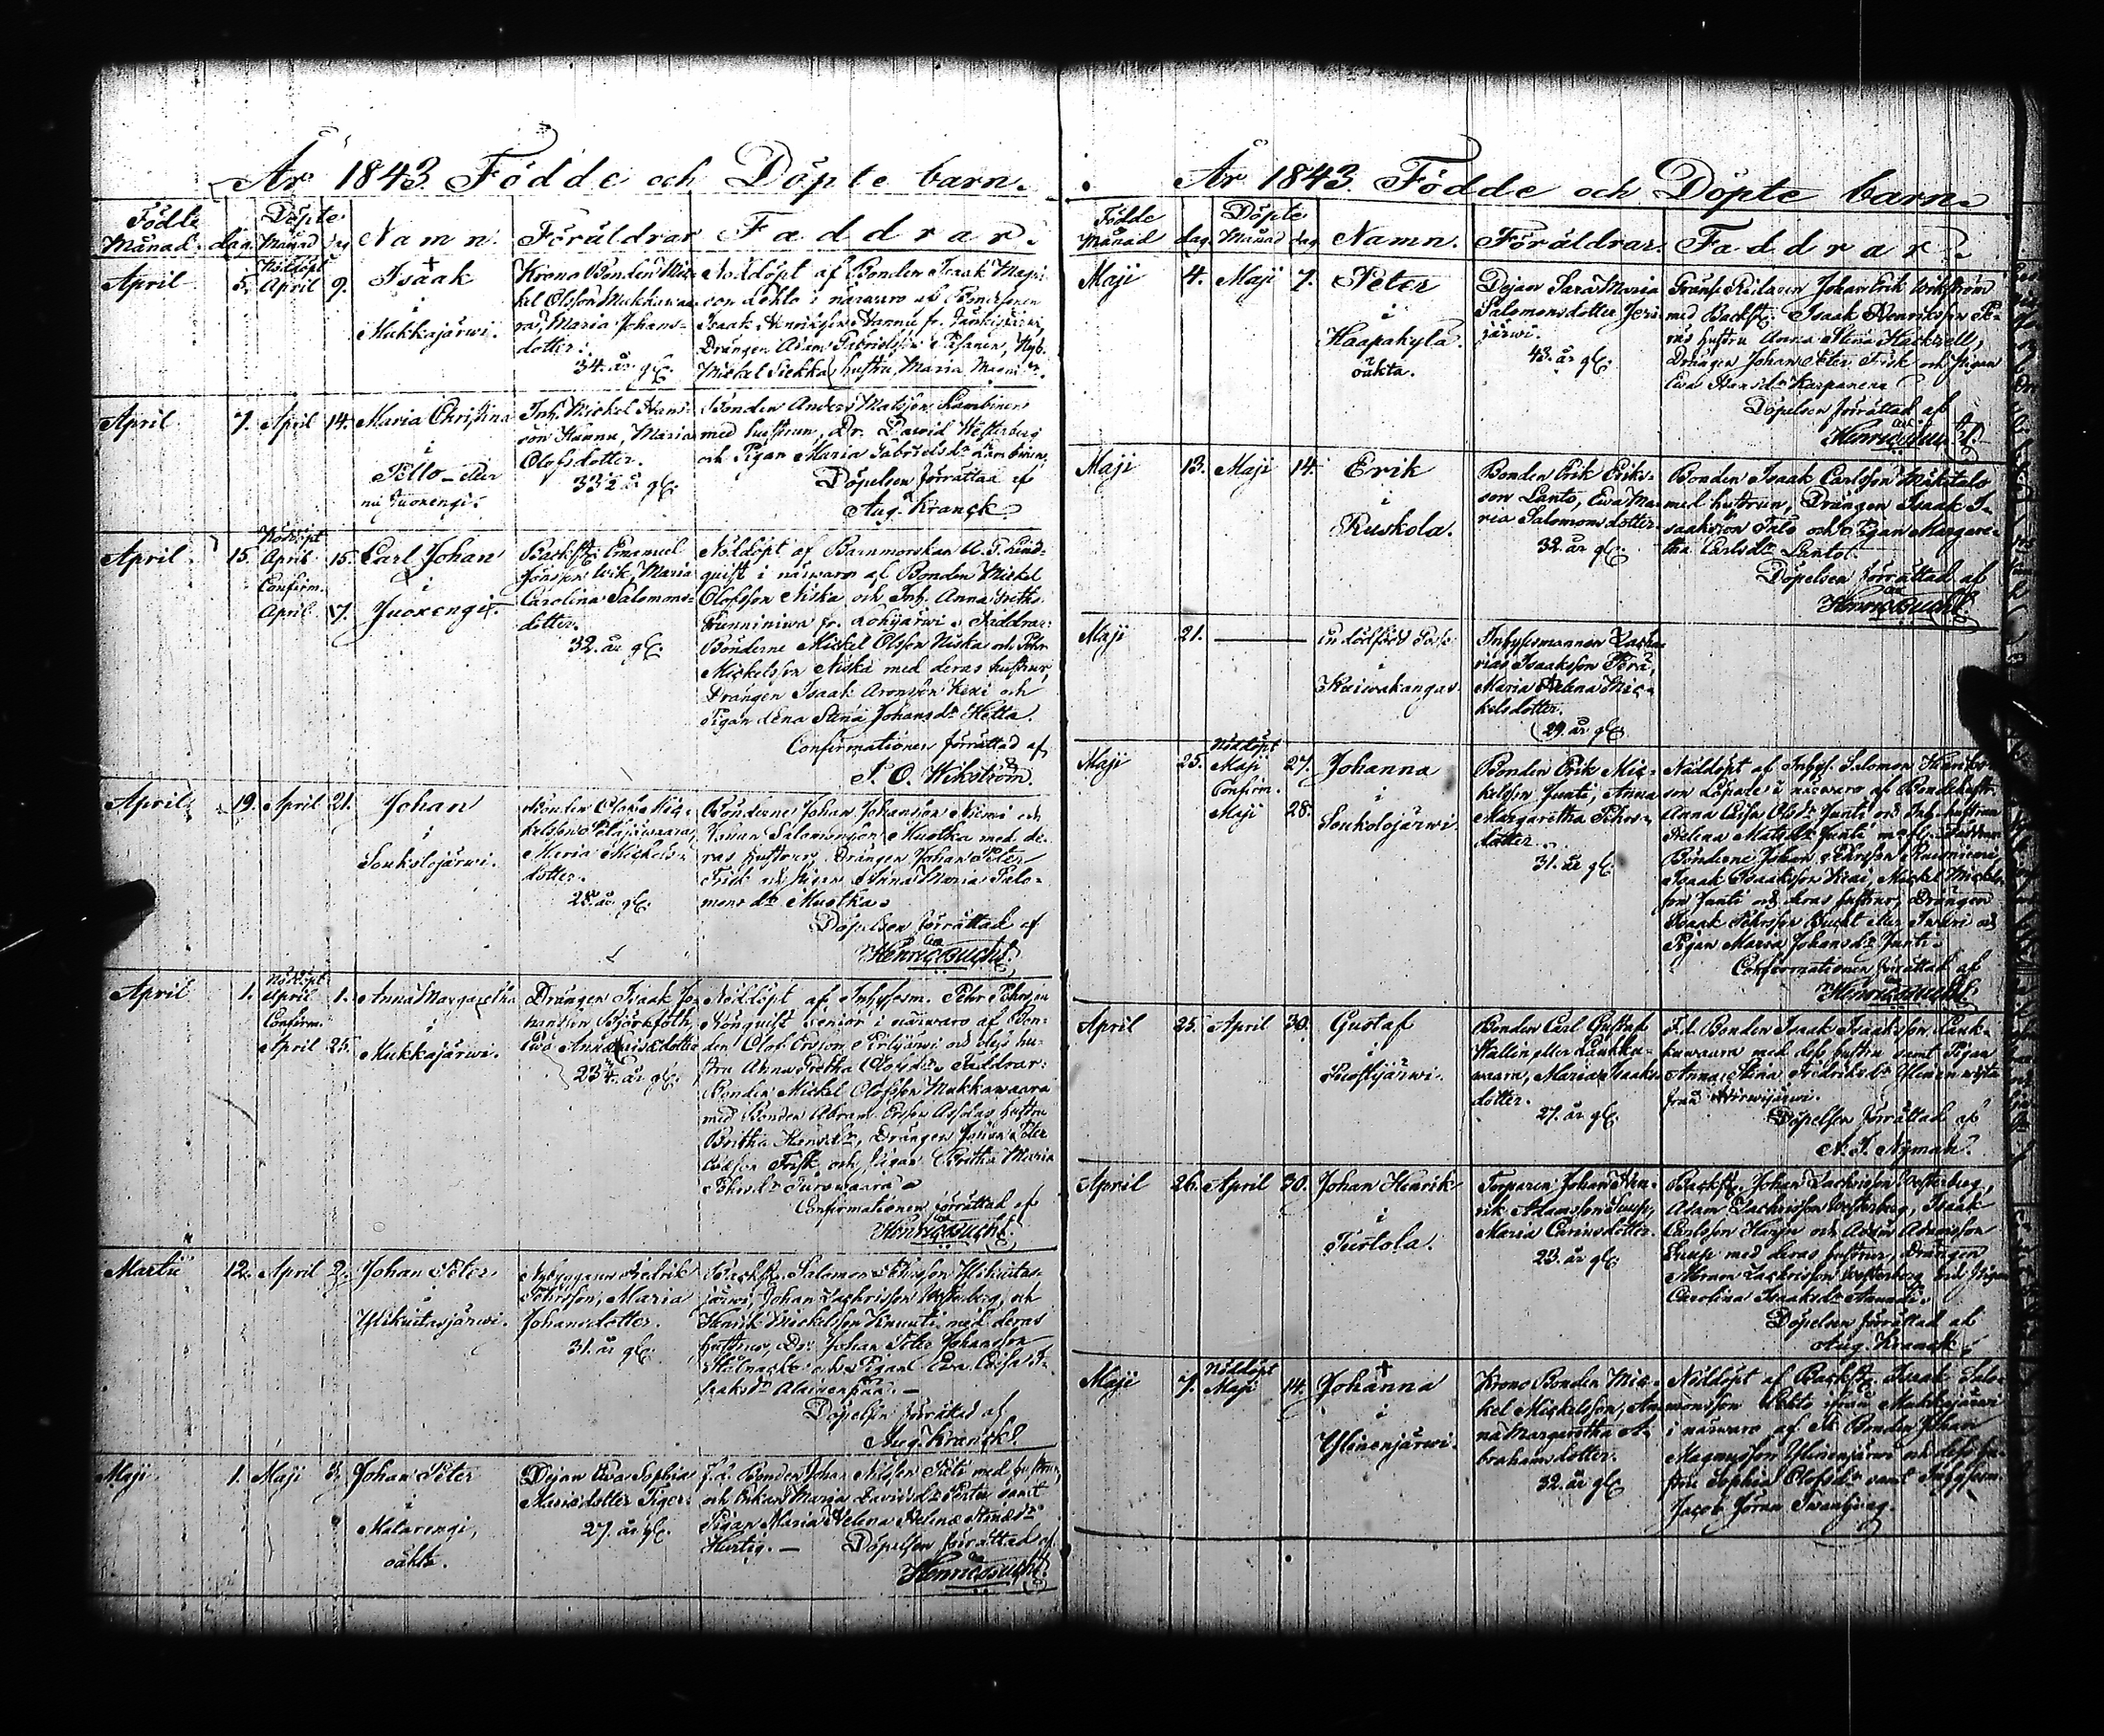 År 1843. Födde och Döpte barn.
Födde Månad. dag. Döpte Månad dag Namn. Föräldrar Faddrar.
April 5. Nöddöpt April 9. Isaak
i
Mukkajärwi.
Krono Bonden Mic-
kel Olsson Mukkawaa-
ra, Maria Johans-
dotter.
34. år gl.
Nöddöpt af Bonden Isaak Magni-
son Lohto i närwaro af
Isaak Henriksson Hannu fr.
Drängen Adam Gabrielsson
Mickel hustru Maria
April 7. April 14. Maria Christina
i
Pello eller
nu Juoxengi.
Inh. Mickel Hans-
son Hannu, Maria
Olofsdotter.
33½ år gl.
Bonden Anders Matsson Lambinen
med hustrun, Dr. David Westerberg
och Pigan Maria Gabrielsdr Lambinen.
Döpelsen förrättad af
Aug. Kranck.
April 15. Nöddöpt April 15. Carl Johan
Confirm.
April 17.
i
Juoxengi.
Backst. Emanuel
Jönsson Wik, Maria
Carolina Salomons-
dotter.
32. år gl.
Nöddöpt af Barnmorskan A. G. Lind-
quist i närwaro af Bonden Mickel
Olofsson Niska och Inh. Anna Greta
fr. Lohijärwi. Faddrar:
Bönderne Mickel Olsson Niska och Pehr
Mickelsson Niska med deras hustrur,
Drängen Isaak Aronsson Kexi och
Pigan Lena Stina Johansdr Hetta.
Confirmationen förrättad af
P. O. Wikström.
April 19. April 21. Johan
i
Soukolojärwi.
Bonden Olof Mic-
kelsson Palojäwaara,
Maria Mickels-
dotter.
28. år gl.
Bönderne Johan Johansson Niemi och
Johan Salomonsson Muotka med de-
ras hustrur, Drängen Johan Peter
Frisk och Pigan Anna Maria Salo-
mons dr Muotka.
Döpelsen förrättad af
Henric Bucht.
April 1. Nöddöpt April 1. Anna Margaretha
Confirm.
April 25.
i
Mukkajärwi.
Drängen Isaak Jo-
hansson Björkfoth,
Ewa Anna dotter
23¼ år gl.
Nöddöpt af Inhysesm. Pehr Pehrsson
Rönquist Senior i närwaro af Bon-
den Olof Ersson Pirtijärwi och dess hu-
stru Anna Gretha Olofsdr. Faddrar:
Bonden Mickel Olofsson Mukkawaara
med Bonden Abram Ersson hustru
Britha Hansdr, Drängen Johan Peter
Frisk och Pigan Britha Maria
Pehrsdr Purawaara.
Confirmationen förrättad af
Henric Bucht.
Martii 12. April 2. Johan Peter
i
Ylikuitasjärwi.
Nybyggaren Fredrik
Pehrsson, Maria
Johansdotter.
31. år gl.
Backst. Salomon Pehrsson Ylikuitas-
järwi, Johan Zachrisson Westerberg, och
Henrik Mickelsson Knuuti med deras
hustrur, Dr. Johan Peter Johansson
Stålnacke och Pigan Ewa Cajsa I-
saksdr Alainenpää.
Döpelsen förrättad af
Aug. Kranck.
Maji 1. Maji 3. Johan Peter
i
Matarengi,
oäkta.
Dejan Ewa Sophia
Mariædotter Tiger.
27. år gl.
F.d. Bonden Johan Nilsson Piiti med hustru
och Enkan Maria Davidsdr samt
Pigan Maria Helena
Hurtig. Döpelsen förrättad af
Henric Bucht.
År 1843. Födde och Döpte barn.
Födde Månad dag Döpte Månad dag Namn. Föräldrar. Faddrar.
Maji 4. Maji 7. Peter
i
Haapakylä.
oäkta.
Dejan Sara Maria
Salomonsdotter Jeris-
järwi.
43. år gl.
Gräns Ridaren Johan Erik Wikström
med Backst. Isaak Henriksson
hustru Anna Stina Hackzell,
Drängen Johan Peter Frisk och Pigan
Ewa Hansdr Karpanen
Döpelsen förrättad af
Henric Bucht.
Maji 13. Maji 14. Erik
i
Ruskola.
Bonden Erik Eriks-
son Lanto, Ewa Ma-
ria Salomonsdotter.
32. år gl.
Bonden Isaak Carlsson Mäkitalo
med hustrun, Drängen Isaak I-
saaksson Palo och Pigan Margare-
tha Carlsdr Lanto.
Döpelsen förrättad af
Henric Bucht
Maji 21. En dödfödd
i
Kaiwakangas.
Inhysesmannen Zacha-
rias Isaaksson
Maria Helena Mic-
kelsdotter.
29. år gl.
Maji 25. Nöddöpt Maji 27. Johanna
Confirm.
Maji 28.
i
Soukolojärwi.
Bonden Erik Mic-
kelsson Junti, Anna
Margaretha Pehrs-
dotter.
31. år gl.
Nöddöpt af Inhys. Salomon
son i närwaro af Bondehustr.
Anna Cajsa Olsdr Junti och Inh. hustrun
Helena Matsdr Junti m.fl. Faddrar:
Bönderne Johan Pehrsson
Isaak Isaaksson Kexi, Mickel Mickels-
son Junti och deras hustrur, Drängen
Isaak Pehrsson Bucht eller och
Pigan Maria Johansdr Junti.
Confirmationen förrättad af
Henric Bucht.
April 25. April 30. Gustaf
i
Puostijärwi.
Bonden Carl Gustaf
Wallin eller Laukku-
waara, Maria Isaaks-
dotter.
27. år gl.
F.d. Bonden Isaak Isaaksson Lauk-
kuwaara med dess hustru samt Pigan
Anna Stina Fredriksdr
från
Döpelsen förrättad af
N. J. Nyman.
April 26. April 30. Johan Henrik
i
Turtola.
Torparen Johan Hen-
rik Adamsson
Maria Carinsdotter.
23. år gl.
Backst. Johan Zachrisson Westerberg,
Adam Zachrisson Westerberg, Isaak
Carlsson och Adam Adamsson
med deras hustrur, Drängen
Abram Zachrisson Westerberg och Pigan
Carolina Isaaksdr
Döpelsen förrättad af
Aug. Kranck.
Maji 7. Nöddöpt Maji 14. Johanna
i
Ylinenjärwi.
Krono Bonden Mic-
kel Mickelsson, An-
na Margaretha A-
brahamsdotter.
32. år gl.
Nöddöpt af Backst. Isaak Salo-
monsson Lohto ifrån Mukkajärwi
i närwaro af Bonden Johan
Magnusson Ylinenjärwi och dess hu-
stru Sophia Olofsdr samt Inhysesm.
Jacob Jöran Swanljung.